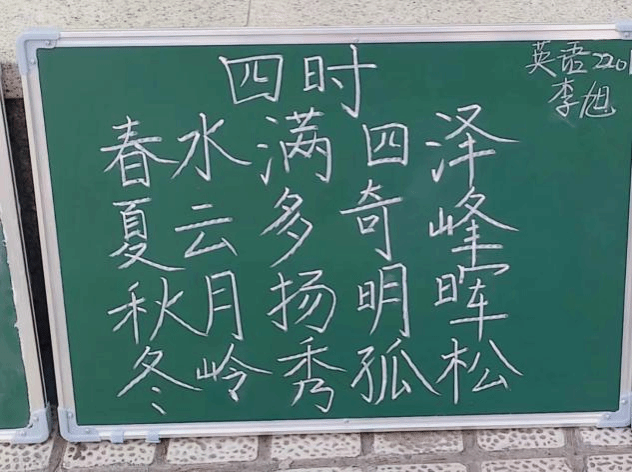 四时
英语2201
李旭
春水满四泽
夏云多奇峰
秋月扬明晖
冬岭秀孤松